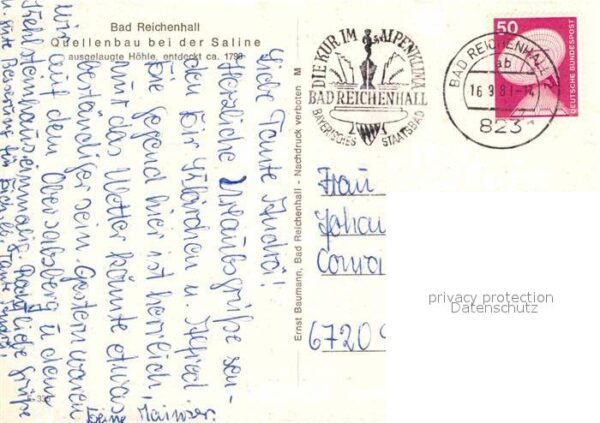 Bad Reichenhall
Quellenbau bei der Saline
ausgelaugte Höhle, entdeckt ca. 1798
Liebe Tante Andrä!
Herzliche Urlaubsgrüße sen-
den Dir Klärchen u. Alfred.
Die Gegend hier ist herrlich,
nur das Wetter könnte etwas
beständiger sein. Gestern waren
wir auf dem Obersalzberg u. dem
Kehlsteinhaus einmalig. Herzliche Grüße
u. gute Besserung für Dich lb. Tante
Deine Mainzer.
Ernst Baumann, Bad Reichenhall - Nachdruck verboten M
DIE KUR IM ALPENKLIMA
BAD REICHENHALL
BAYERISCHES STAATSBAD
BAD REICHENHALL
ab
16.9.81-14
823
50
DEUTSCHE BUNDESPOST
Frau
Johan
Conra
6720
privacy protection
Datenschutz